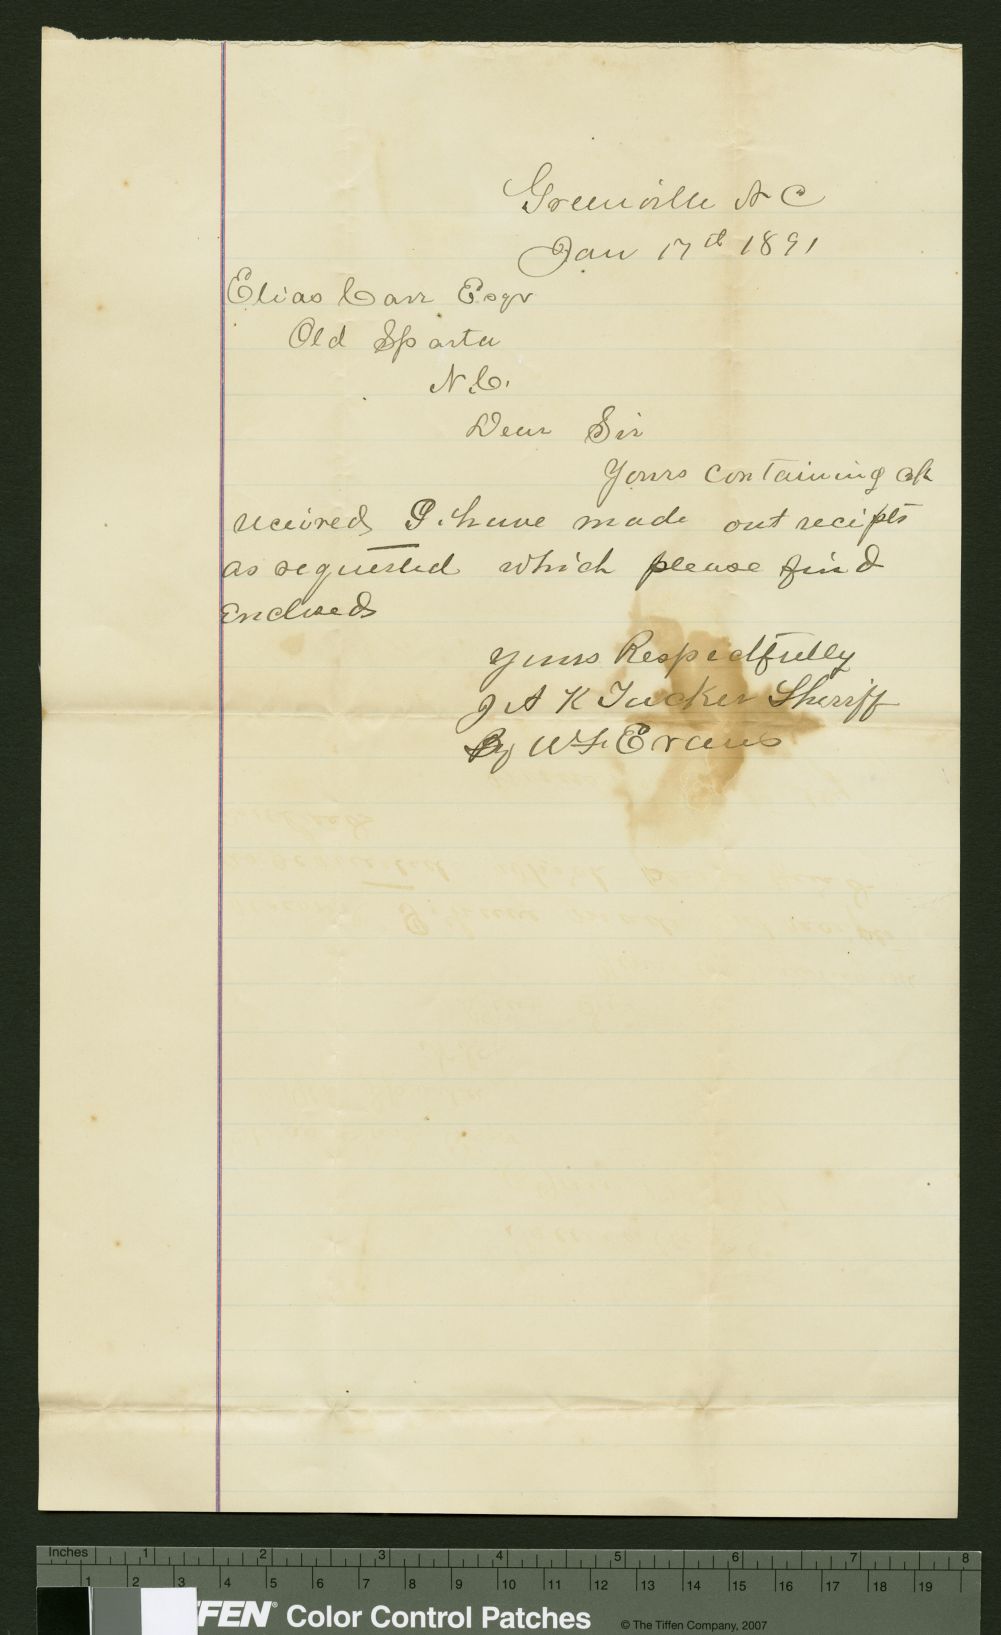 Greenville N C
Jan 17th 1891
Elias Carr Esqr
Old Sparta
N.C.
Dear Sir
Yours containing ck
received I have made out recipts
as requested which please find
enclosed
Yours Respectfully
J A K Tucker Sheriff
By W F Evans
Inches 1 2 3 4 5 6 7 8
1 2 3 4 5 6 7 8 9 10 11 12 13 14 15 16 17 18 19
FFEN® Color Control Patches © The Tiffen Company, 2007